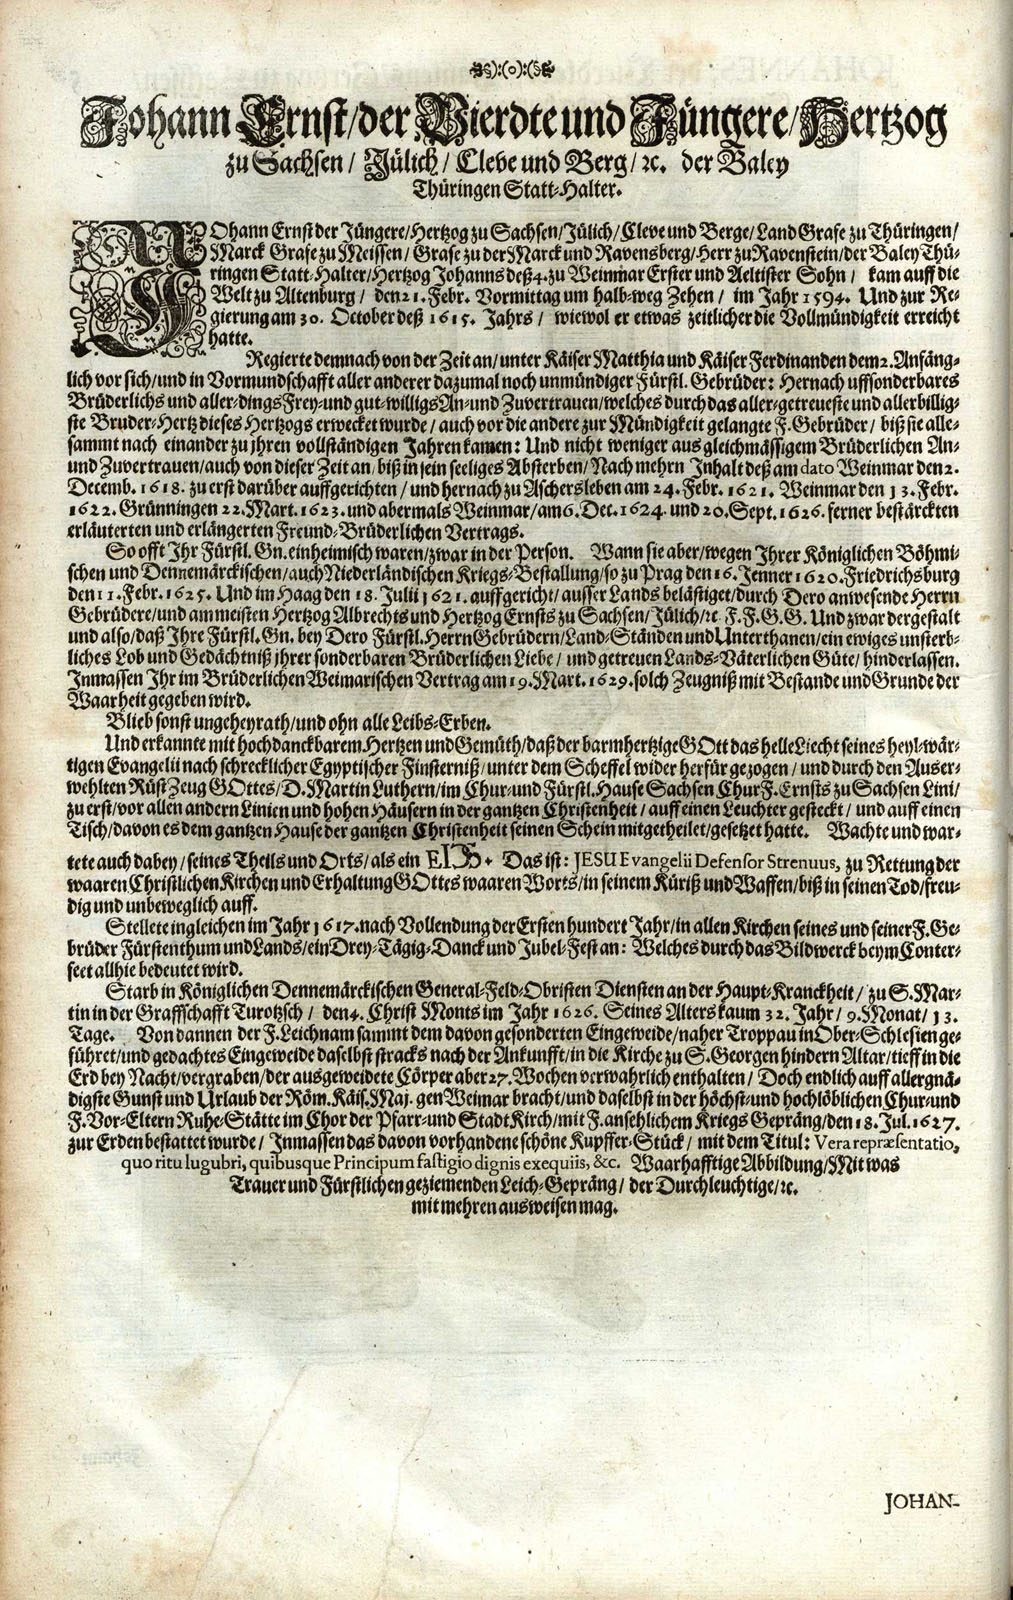 ):(o):(
Johann Ernst/der Vierdte und Jüngere/Hertzog
zu Sachsen/ Jülich/ Cleve und Berg/ ꝛc. der Baley
Thüringen Statt-Halter.
JOhann Ernst der Jüngere/Hertzog zu Sachsen/Jülich/Cleve und Berge/Land Grafe zu Thüringen/
Marck Grafe zu Meissen/ Grafe zu der Marck und Ravensberg/Herr zu Ravenstein/der Baley Thü-
ringen Statt-Halter/Hertzog Johanns deß 4. zu Weinmar Erster und Aeltister Sohn/ kam auff die
Welt zu Altenburg/ den 21. Febr. Vormittag um halb-weg Zehen/ im Jahr 1594. Und zur Re-
gierung am 30. October deß 1615. Jahrs/ wiewol er etwas zeitlicher die Vollmündigkeit erreicht
hatte.
Regierte demnach von der Zeit an/unter Käiser Matthia und Käiser Ferdinanden dem 2. Anfäng-
lich vor sich/und in Vormundschafft aller anderer dazumal noch unmündiger Fürstl. Gebrüder: Hernach uff sonderbares
Brüderlichs und aller-dings Frey-und gut-willigs An-und Zuvertrauen/welches durch das aller-getreueste und allerbillig-
ste Bruder-Hertz dieses Hertzogs erwecket wurde/auch vor die andere zur Mündigkeit gelangte F. Gebrüder/ biß sie alle-
sammt nach einander zu jhren vollständigen Jahren kamen: Und nicht weniger aus gleichmässigem Brüderlichen An-
und Zuvertrauen/auch von dieser Zeit an/biß in sein seeliges Absterben/Nach mehrn Inhalt deß am dato Weinmar den 2.
Decemb. 1618. zu erst darüber auffgerichten/und hernach zu Aschersleben am 24. Febr. 1621. Weinmar den 13. Febr.
1622. Grünningen 22. Mart. 1623. und abermals Weinmar/am 6. Dec. 1624. und 20. Sept. 1626. ferner bestärckten
erläuterten und erlängerten Freund-Brüderlichen Vertrags.
So offt Ihr Fürstl. Gn. einheimisch waren/zwar in der Person. Wann sie aber/wegen Ihrer Königlichen Böhmi-
schen und Dennemärckischen/auch Niederländischen Kriegs-Bestallung/so zu Prag den 16. Jenner 1620. Friedrichsburg
den 11. Febr. 1625. Und im Haag den 18. Julii 1621. auffgericht/ausser Lands belästiget/durch Dero anwesende Herrn
Gebrüdere/und am meisten Hertzog Albrechts und Hertzog Ernsts zu Sachsen/Jülich/ꝛc. F. F. G. G. Und zwar dergestalt
und also/daß Ihre Fürstl. Gn. bey Dero Fürstl. Herrn Gebrüdern/Land-Ständen und Unterthanen/ein ewiges unsterb-
liches Lob und Gedächtniß jhrer sonderbaren Brüderlichen Liebe/ und getreuen Lands-Väterlichen Güte/hinderlassen.
Inmassen Ihr im Brüderlichen Weimarischen Vertrag am 19. Mart. 1629. solch Zeugniß mit Bestande und Grunde der
Waarheit gegeben wird.
Blieb sonst ungeheyrath/und ohn alle Leibs-Erben.
Und erkannte mit hochdanckbarem Hertzen und Gemüth/daß der barmhertzige GOtt das helle Liecht seines heyl-wär-
tigen Evangelii nach schrecklicher Egyptischer Finsterniß/unter dem Scheffel wider herfür gezogen/und durch den Auser-
wehlten Rüst Zeug GOttes/D. Martin Luthern/im Chur-und Fürstl. Hause Sachsen Chur F. Ernsts zu Sachsen Lini/
zu erst/vor allen andern Linien und hohen Häusern in der gantzen Christenheit/auff einen Leuchter gesteckt/und auff einen
Tisch/davon es dem gantzen Hause der gantzen Christenheit seinen Schein mitgetheilet/gesetzet hatte. Wachte und war-
tete auch dabey/seines Theils und Orts/als ein Das ist: JESU Evangelii Defensor Strenuus, zu Rettung der
waaren Christlichen Kirchen und Erhaltung GOttes waaren Worts/in seinem Küriß und Waffen/biß in seinen Tod/freu-
dig und unbeweglich auff.
Stellete ingleichen im Jahr 1617. nach Vollendung der Ersten hundert Jahr/in allen Kirchen seines und seiner F. Ge-
brüder Fürstenthum und Lands/ein Drey-Tägig-Danck und Jubel-Fest an: Welches durch das Bildwerck beym Conter-
feet allhie bedeutet wird.
Starb in Königlichen Dennemärckischen General-Feld-Obristen Diensten an der Haupt-Kranckheit/zu S. Mar-
tin in der Graffschafft Turotzsch/ den 4. Christ Monts im Jahr 1626. Seines Alters kaum 32. Jahr/9. Monat/13.
Tage. Von dannen der F. Leichnam sammt dem davon gesonderten Eingeweide/naher Troppau in Ober-Schlesien ge-
führet/und gedachtes Eingeweide daselbst stracks nach der Ankunfft/in die Kirche zu S. Georgen hindern Altar/tieff in die
Erd bey Nacht/vergraben/der ausgeweidete Cörper aber 27. Wochen verwahrlich enthalten/Doch endlich auff allergnä-
digste Gunst und Urlaub der Röm. Käis. Maj. gen Weimar bracht/und daselbst in der höchst-und hochlöblichen Chur-und
F. Vor-Eltern Ruhe-Stätte im Chor der Pfarr-und Stadt Kirch/mit F. ansehlichem Kriegs Gepräng/den 18. Jul. 1627.
zur Erden bestattet wurde/ Inmassen das davon vorhandene schöne Kupffer-Stück/ mit dem Titul: Vera repræsentatio,
quo ritu lugubri, quibusque Principum fastigio dignis exequiis, &c. Waarhafftige Abbildung/Mit was
Trauer und Fürstlichen geziemenden Leich-Gepräng/ der Durchleuchtige/ꝛc.
mit mehren ausweisen mag.
JOHAN-